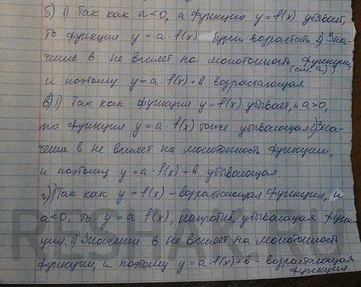 б) 1) Так как a<0, а функция y=f(x) убывает,
то функция y=a·f(x) будет возрастать 2) Зна-
чение в не влияет на монотонность функции, (см. а)
и поэтому y=a f(x)+в возрастающая
в) 1) Так как функция y=f(x) убывает, и a>0,
то функция y=a·f(x) тоже убывающая 2) Зна-
чение в не влияет на монотонность функции,
и поэтому y=a f(x)+в убывающая
г) 1) Так как y=f(x) - возрастающая функция, и
a<0, то y=a f(x), напротив, убывающая функ-
ция 2) Значение в не влияет на монотонность
функции, и поэтому y=a·f(x)+в - возрастающая
функция